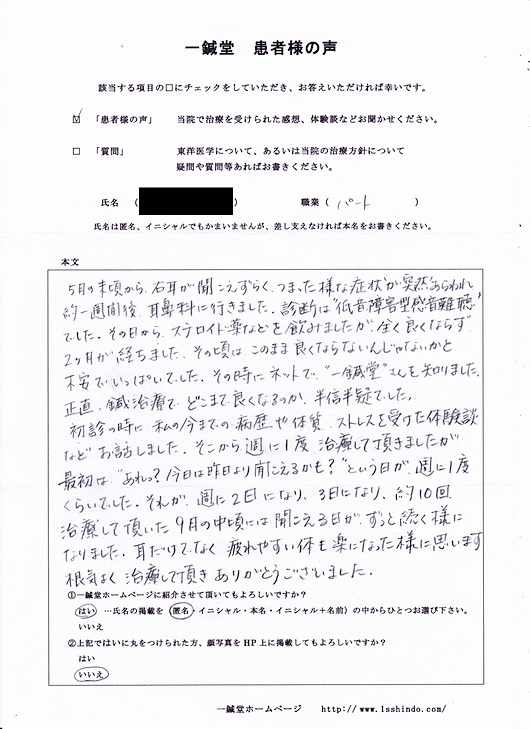 一鍼堂 患者様の声
該当する項目の□にチェックをしていただき、お答えいただければ幸いです。
☑ 「患者様の声」 当院で治療を受けられた感想、体験談などお聞かせください。
□ 「質問」 東洋医学について、あるいは当院の治療方針について
疑問や質問等あればお書きください。
氏名 ( ) 職業 ( パート )
氏名は匿名、イニシャルでもかまいませんが、差し支えなければ本名をお書きください。
本文
5月の末頃から、右耳が聞こえずらく、つまった様な症状が突然あらわれ
約一週間後、耳鼻科に行きました。診断は"低音障害型感音難聴"
でした。その日から、ステロイド薬などを飲みましたが、全く良くならず
2ヶ月が経ちました。その頃は、このまま良くならないんじゃないかと
不安でいっぱいでした。その時にネットで、"一鍼堂"さんを知りました。
正直、鍼治療で、どこまで良くなるのか、半信半疑でした。
初診の時に 私の今までの病歴や体質、ストレスを受けた体験談
など お話しました。そこから 週に1度 治療して頂きましたが
最初は、"あれっ?今日は昨日より聞こえるかも?"という日が、週に1度
くらいでした。それが、週に2日になり、3日になり、約10回
治療して頂いた 9月の中頃には 聞こえる日が、ずっと続く様に
なりました。耳だけでなく 疲れやすい体も楽になった様に思います
根気よく 治療して頂き ありがとうございました。
①一鍼堂ホームページに紹介させて頂いてもよろしいですか?
はい …氏名の掲載を (匿名・イニシャル・本名・イニシャル+名前) の中からひとつお選び下さい。
いいえ
②上記ではいに丸をつけられた方、顔写真をHP上に掲載してもよろしいですか?
はい
いいえ
一鍼堂ホームページ http://www.1sshindo.com/